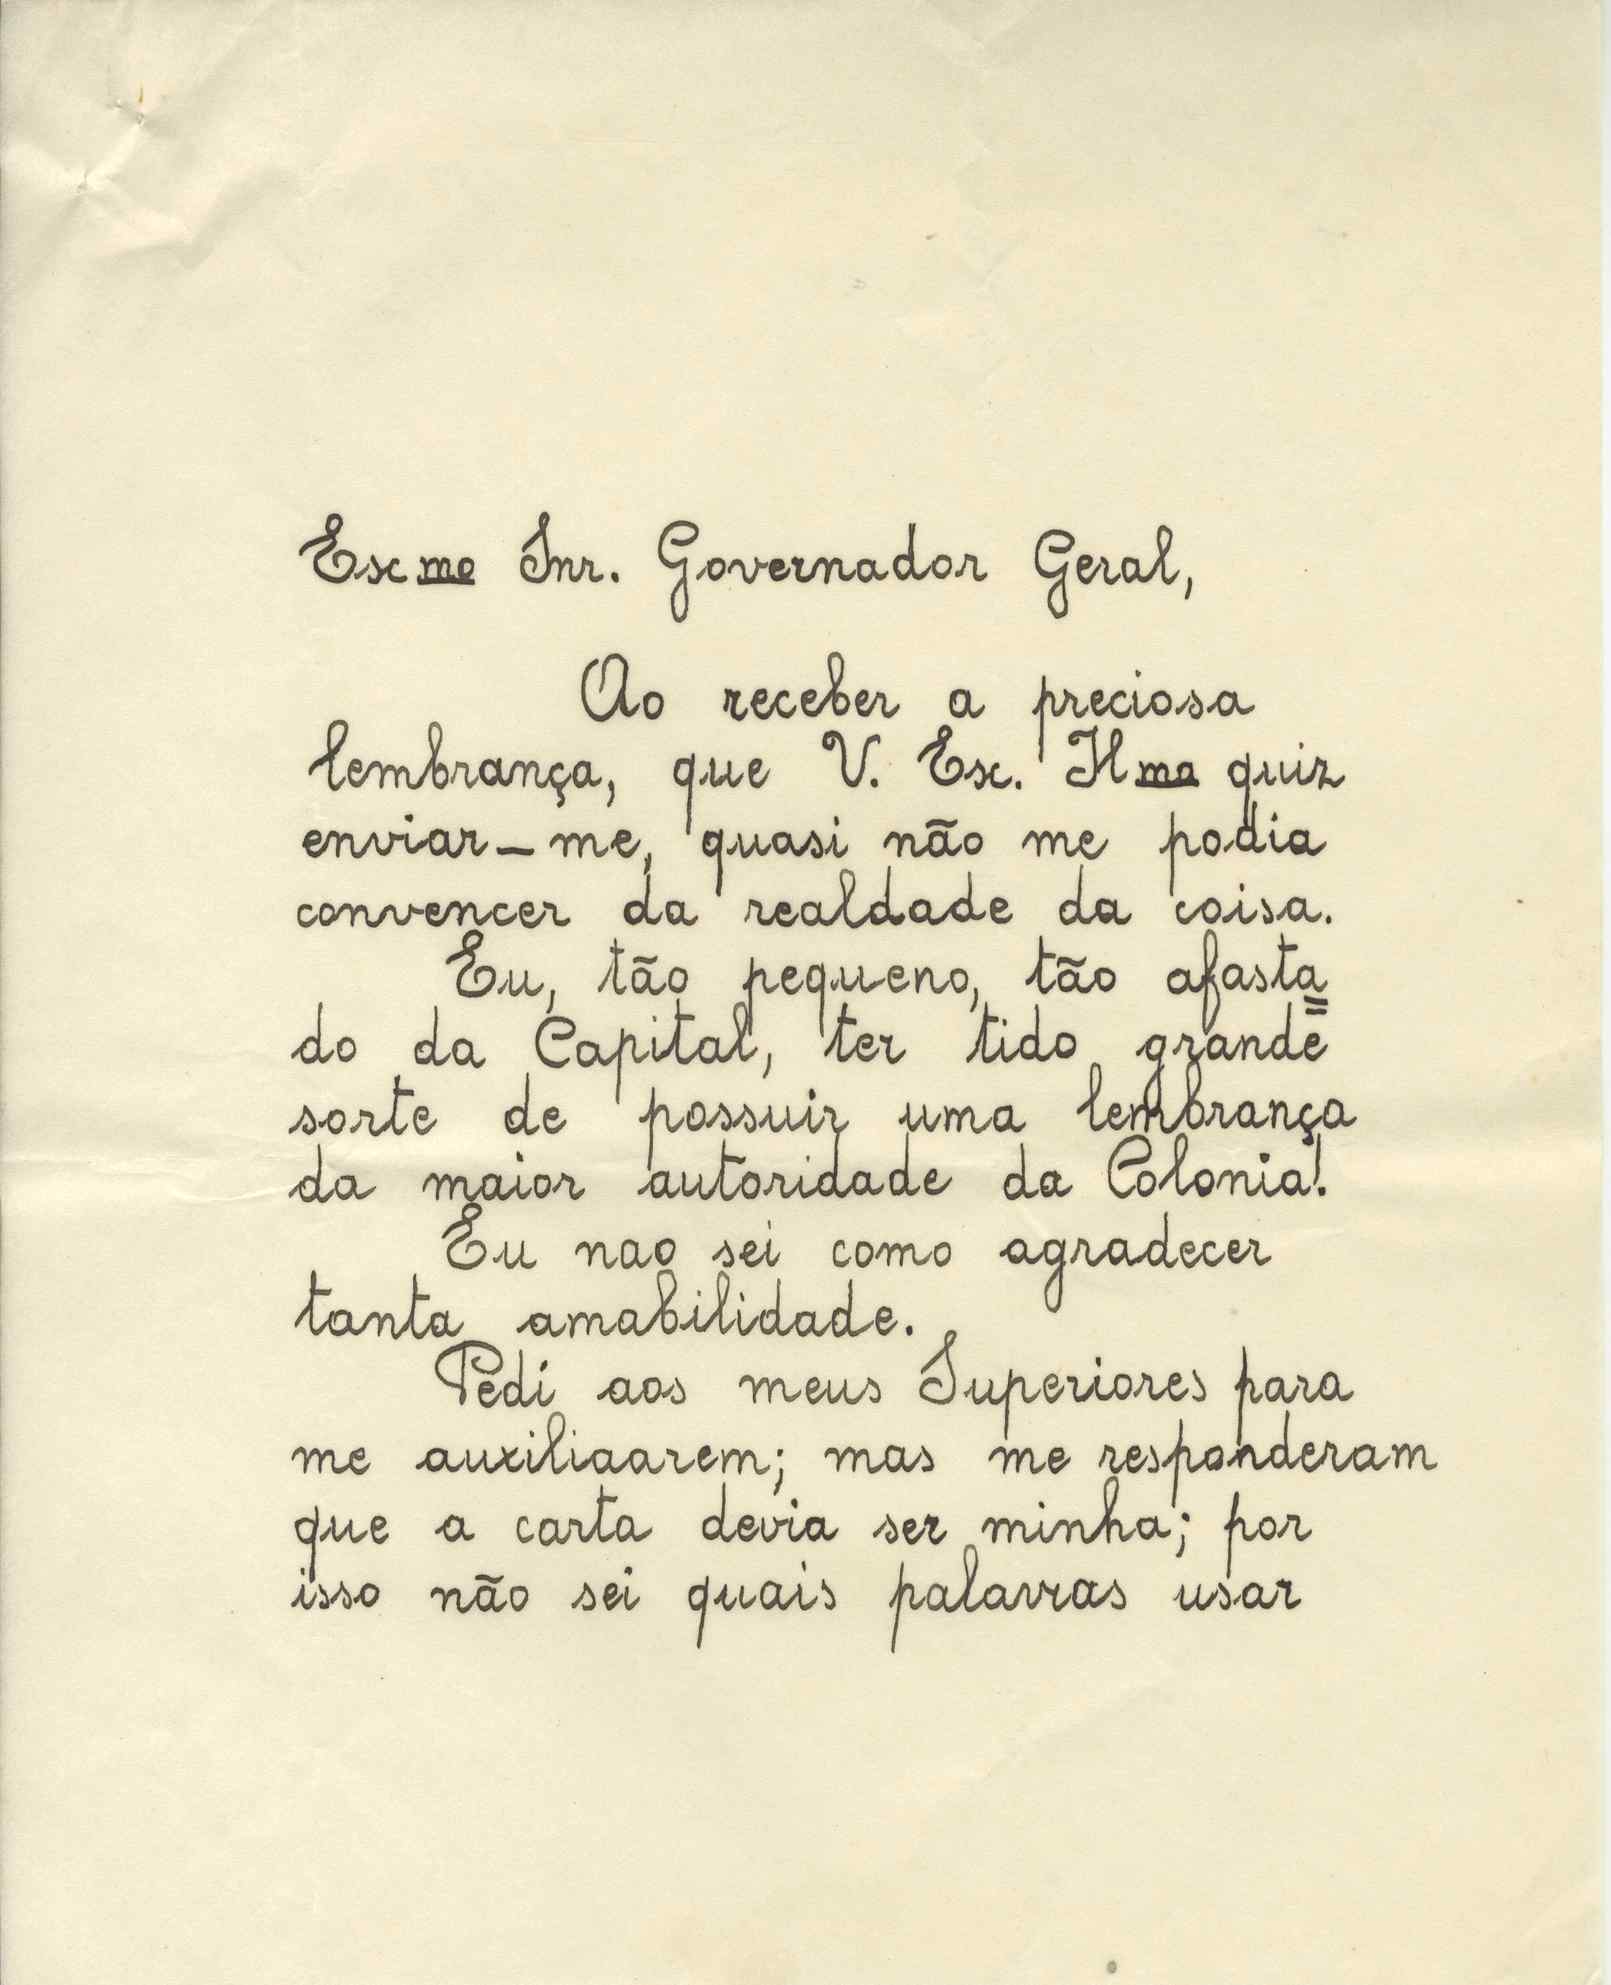 Exmo Snr. Governador Geral,
Ao receber a preciosa
lembrança, que V. Ex. Ilma quiz
enviar-me, quasi não me podia
convencer da realdade da coisa.
Eu, tão pequeno, tão afasta=
do da Capital, ter tido grande
sorte de possuir uma lembrança
da maior autoridade da Colonia!
Eu nao sei como agradecer
tanta amabilidade.
Pedi aos meus Superiores para
me auxiliaarem; mas me responderam
que a carta devia ser minha; por
isso não sei quais palavras usar